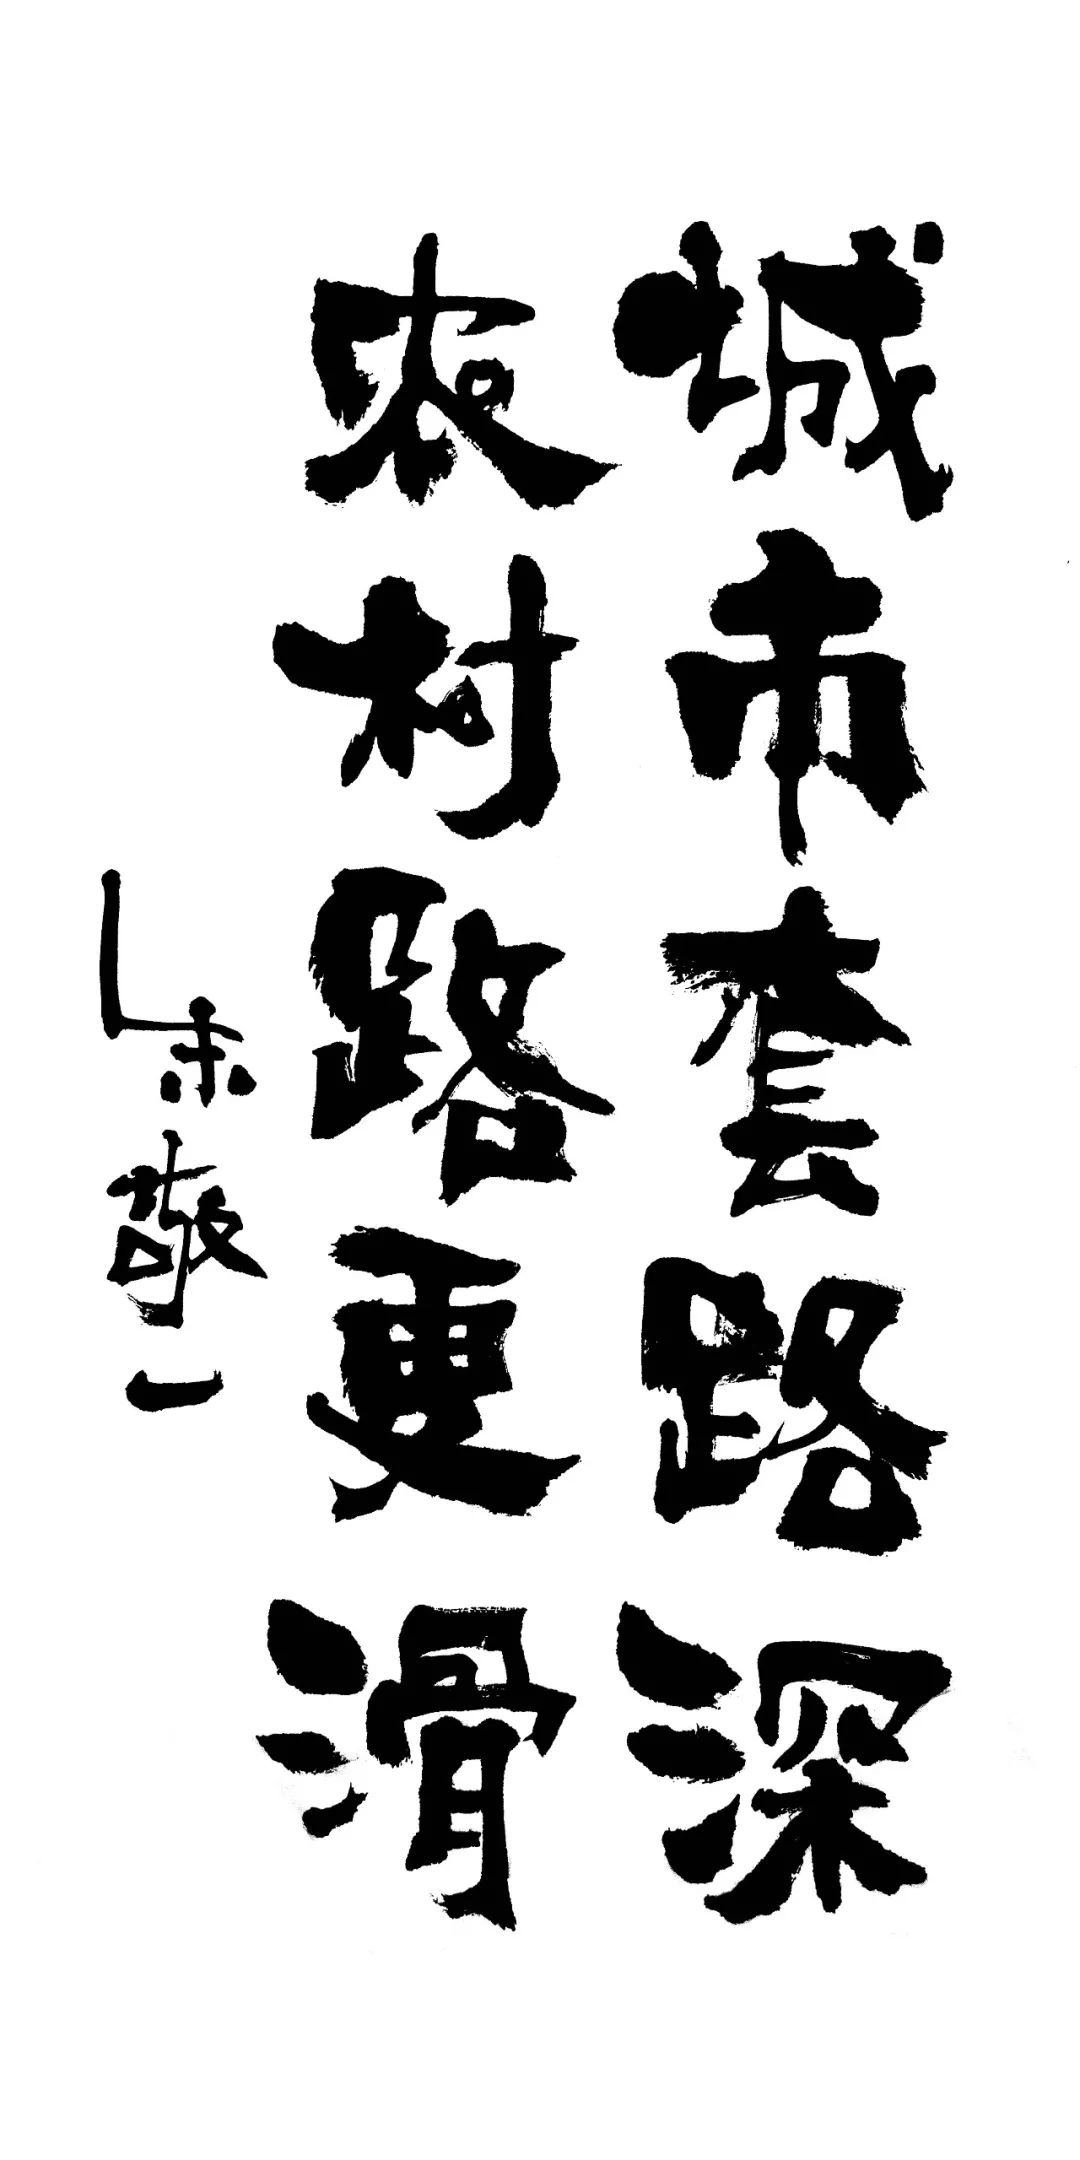 城市套路深
农村路更滑
朱敬一